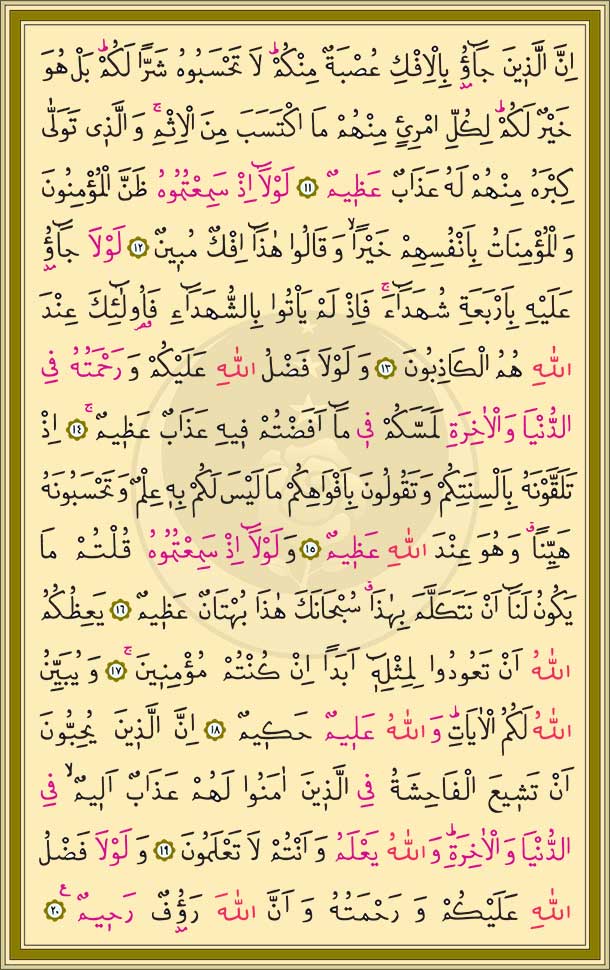 اِنَّ الَّذ۪ينَ جَٓاؤُ۫ بِالْاِفْكِ عُصْبَةٌ مِنْكُمْۜ لَا تَحْسَبُوهُ شَرًّا لَكُمْۜ بَلْ هُوَ
خَيْرٌ لَكُمْۜ لِكُلِّ امْرِئٍ مِنْهُمْ مَا اكْتَسَبَ مِنَ الْاِثْمِۚ وَالَّذ۪ي تَوَلّٰى
كِبْرَهُ مِنْهُمْ لَهُ عَذَابٌ عَظ۪يمٌ ﴿١١﴾ لَوْلَٓا اِذْ سَمِعْتُمُوهُ ظَنَّ الْمُؤْمِنُونَ
وَالْمُؤْمِنَاتُ بِاَنْفُسِهِمْ خَيْرًاۙ وَقَالُوا هٰذَٓا اِفْكٌ مُب۪ينٌ ﴿١٢﴾ لَوْلَا جَٓاؤُ۫
عَلَيْهِ بِاَرْبَعَةِ شُهَدَٓاءَۚ فَاِذْ لَمْ يَأْتُوا بِالشُّهَدَٓاءِ فَاُو۬لٰٓئِكَ عِنْدَ
اللّٰهِ هُمُ الْكَاذِبُونَ ﴿١٣﴾ وَلَوْلَا فَضْلُ اللّٰهِ عَلَيْكُمْ وَرَحْمَتُهُ فِي
الدُّنْيَا وَالْاٰخِرَةِ لَمَسَّكُمْ ف۪ي مَٓا اَفَضْتُمْ ف۪يهِ عَذَابٌ عَظ۪يمٌۚ ﴿١٤﴾ اِذْ
تَلَقَّوْنَهُ بِاَلْسِنَتِكُمْ وَتَقُولُونَ بِاَفْوَاهِكُمْ مَا لَيْسَ لَكُمْ بِه۪ عِلْمٌ وَتَحْسَبُونَهُ
هَيِّنًاۗ وَهُوَ عِنْدَ اللّٰهِ عَظ۪يمٌ ﴿١٥﴾ وَلَوْلَٓا اِذْ سَمِعْتُمُوهُ قُلْتُمْ مَا
يَكُونُ لَنَٓا اَنْ نَتَكَلَّمَ بِهٰذَاۗ سُبْحَانَكَ هٰذَا بُهْتَانٌ عَظ۪يمٌ ﴿١٦﴾ يَعِظُكُمُ
اللّٰهُ اَنْ تَعُودُوا لِمِثْلِه۪ٓ اَبَدًا اِنْ كُنْتُمْ مُؤْمِن۪ينَۚ ﴿١٧﴾ وَيُبَيِّنُ
اللّٰهُ لَكُمُ الْاٰيَاتِۜ وَاللّٰهُ عَل۪يمٌ حَك۪يمٌ ﴿١٨﴾ اِنَّ الَّذ۪ينَ يُحِبُّونَ
اَنْ تَش۪يعَ الْفَاحِشَةُ فِي الَّذ۪ينَ اٰمَنُوا لَهُمْ عَذَابٌ اَل۪يمٌۙ فِي
الدُّنْيَا وَالْاٰخِرَةِۜ وَاللّٰهُ يَعْلَمُ وَاَنْتُمْ لَا تَعْلَمُونَ ﴿١٩﴾ وَلَوْلَا فَضْلُ
اللّٰهِ عَلَيْكُمْ وَرَحْمَتُهُ وَاَنَّ اللّٰهَ رَؤُ۫فٌ رَح۪يمٌ۟ ﴿٢٠﴾